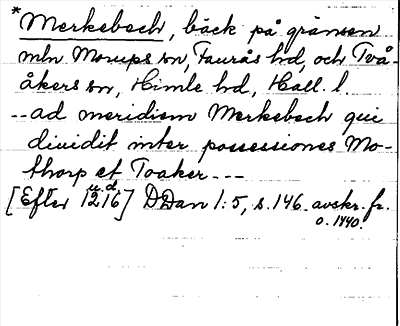 *Merkebech, bäck på gränsen
mln Morups sn, Faurås hd, och Två-
åkers sn, Himle hd, Hall. l.
-- ad meridiem Merkebech qui
dividit inter possessiones Mo-
thorp et Toaker ---
[Efter u.d. 1216] DDan 1:5, s. 146. avskr. fr.
o. 1440.